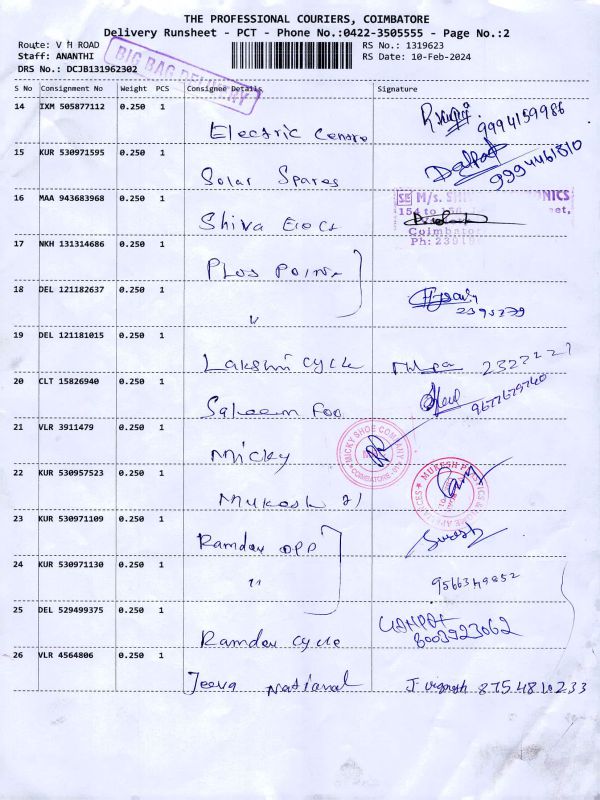 THE PROFESSIONAL COURIERS, COIMBATORE
Delivery Runsheet - PCT - Phone No.:0422-3505555 - Page No.:2
Route: V H ROAD RS No.: 1319623
Staff: ANANTHI RS Date: 10-Feb-2024
DRS No.: DCJB131962302
BIG BAG DELIVERY
S No Consignment No Weight PCS Consignee Details Signature
14 IXM 505877112 0.250 1 Electric Centre 9994159986
15 KUR 530971595 0.250 1 Solar Spares 9994461810
16 MAA 943683968 0.250 1 Shiva
M/s.
154 to
Coimbator
Ph:
17 NKH 131314686 0.250 1 Plus Point
18 DEL 121182637 0.250 1 "
19 DEL 121181015 0.250 1 Lakshmi Cycle
20 CLT 15826940 0.250 1 Saleem Foo
21 VLR 3911479 0.250 1 Micky
MICKY SHOE COMPANY
COIMBATORE
22 KUR 530957523 0.250 1 Mukesh
23 KUR 530971109 0.250 1 Ramdev opp Suresh
24 KUR 530971130 0.250 1 "
25 DEL 529499375 0.250 1 Ramdev Cycle 8003923062
26 VLR 4564806 0.250 1 Jeeva National J. Vignesh 875 48 10 233